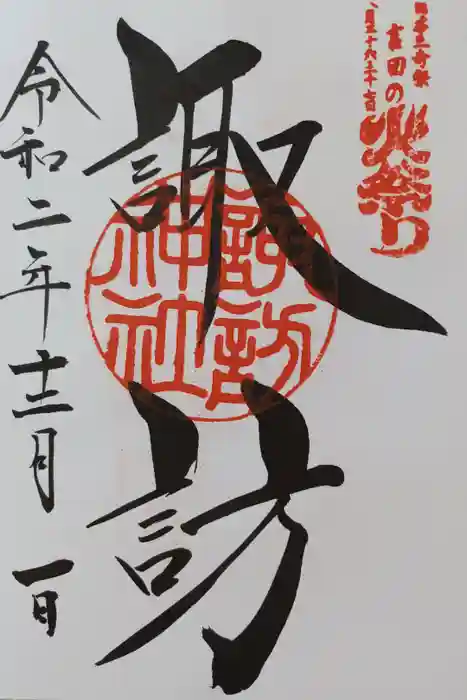 日本三奇祭
吉田の火祭り
八月二十六二十七日
諏訪
諏訪
神社
令和二年十二月一日